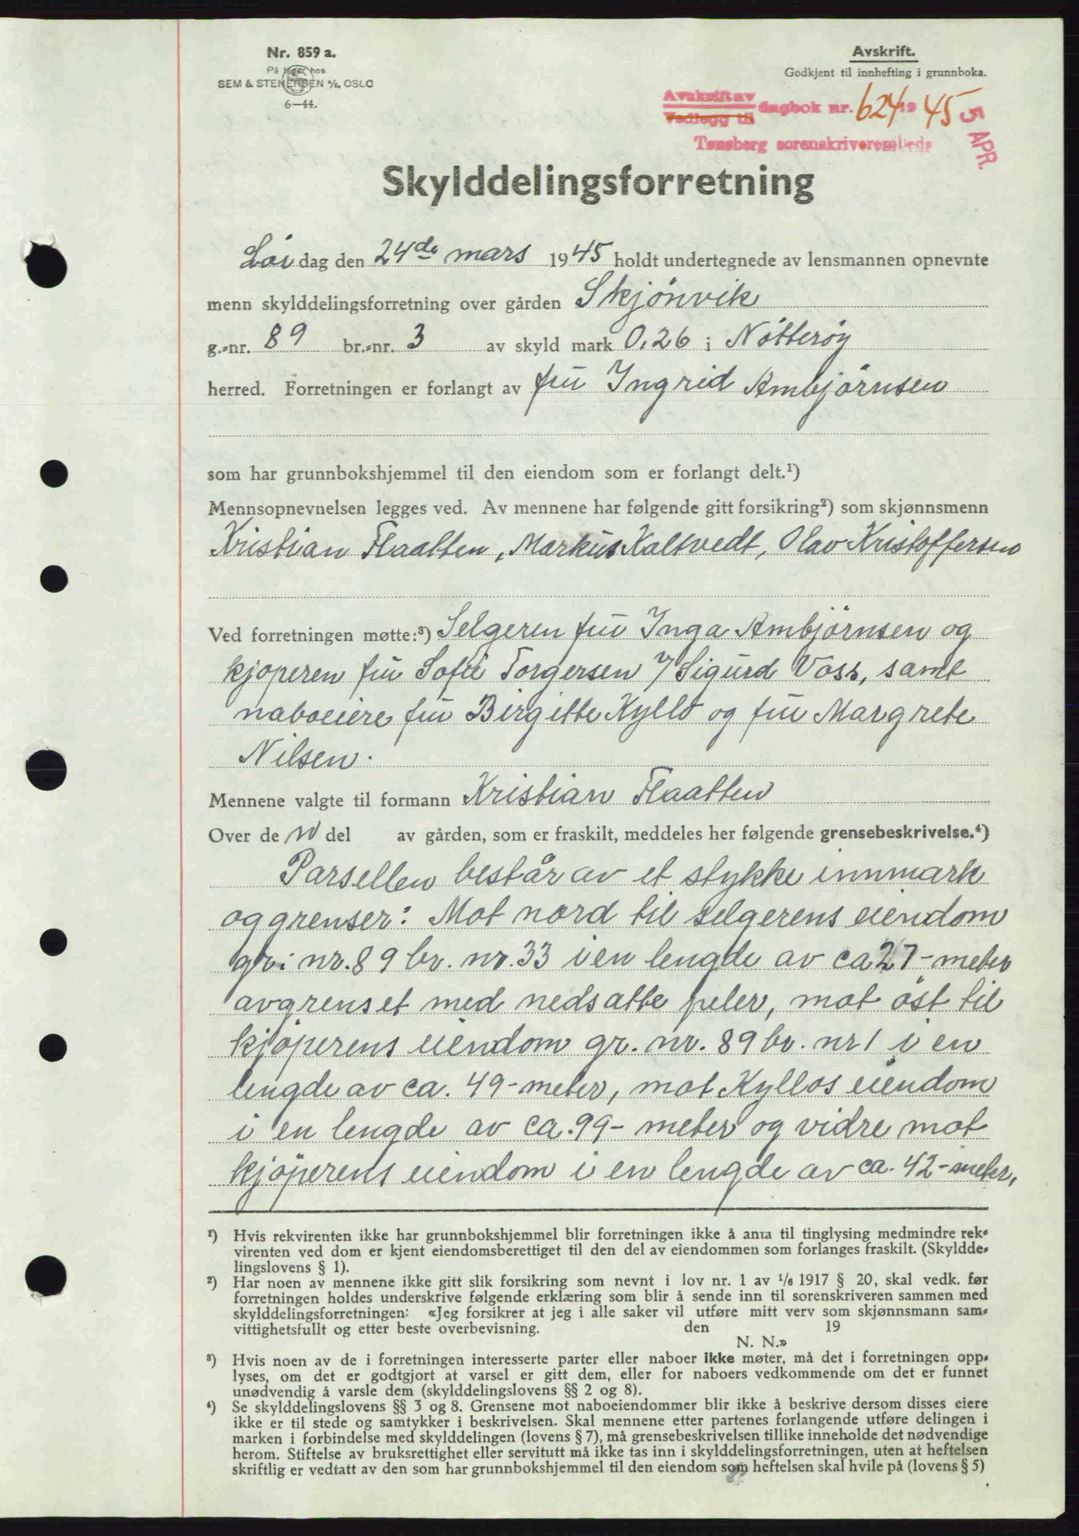 Nr. 859 a.
På lager hos
SEM & STENERSEN A/S, OSLO
6—44.
Avskrift.
Godkjent til innhefting i grunnboka.
Avskrift av
Vedlegg til
dagbok nr. 624 19 45
5 APR.
Tønsberg sorenskriverembede
Skylddelingsforretning
Lör dag den 24de mars 1945 holdt undertegnede av lensmannen opnevnte
menn skylddelingsforretning over gården Skjönvik
g.-nr. 89 br.-nr. 3 av skyld mark 0,26 i Nötteröy
herred. Forretningen er forlangt av fru Ingrid Ambjörnsen
som har grunnbokshjemmel til den eiendom som er forlangt delt.¹)
Mennsopnevnelsen legges ved. Av mennene har følgende gitt forsikring²) som skjønnsmenn
Kristian Flaatten, Markus Kaltvedt, Olav Kristoffersen
Ved forretningen møtte:³) Selgeren fru Inga Ambjörnsen og
kjöperen fru Sofie Torgersen v/ Sigurd Voss, samt
naboeiere fru Birgitte Kyllö og fru Margrete
Nilsen.
Mennene valgte til formann Kristian Flaatten
Over de n del av gården, som er fraskilt, meddeles her følgende grensebeskrivelse.⁴)
Parsellen består av et stykke innmark
og grenser: Mot nord til selgerens eiendom
gr. nr. 89 br. nr. 33 i en lengde av ca 27-meter
avgrenset med nedsatte peler, mot öst til
kjöperens eiendom gr. nr. 89 br. nr 1 i en
lengde av ca. 49-meter, mot Kyllös eiendom
i en lengde av ca. 99- meter og vidre mot
kjöperens eiendom i en lengde av ca. 42-meter,
¹) Hvis rekvirenten ikke har grunnbokshjemmel blir forretningen ikke å anta til tinglysing medmindre rek-
virenten ved dom er kjent eiendomsberettiget til den del av eiendommen som forlanges fraskilt. (Skyldde-
lingslovens § 1).
²) Har noen av mennene ikke gitt slik forsikring som nevnt i lov nr. 1 av 1/6 1917 § 20, skal vedk. før
forretningen holdes underskrive følgende erklæring som blir å sende inn til sorenskriveren sammen med
skylddelingsforretningen: «Jeg forsikrer at jeg i alle saker vil utføre mitt verv som skjønnsmann sam-
vittighetsfullt og etter beste overbevisning. den 19
N. N.»
³) Hvis noen av de i forretningen interesserte parter eller naboer ikke møter, må det i forretningen opp-
lyses, om det er godtgjort at varsel er gitt dem, eller for naboers vedkommende om det er funnet
unødvendig å varsle dem (skylddelingslovens §§ 2 og 8).
⁴) Se skylddelingslovens §§ 3 og 8. Grensene mot naboeiendommer blir ikke å beskrive dersom disses eiere
ikke er til stede og samtykker i beskrivelsen. Skal mennene etter partenes forlangende utføre delingen i
marken i forbindelse med skylddelingen (lovens § 7), må grensebeskrivelsen tillike inneholde det nødvendige
herom. Stiftelse av bruksrettighet eller servitutt må ikke tas inn i skylddelingsforretningen, uten at heftelsen
skriftlig er vedtatt av den som har grunnbokshjemmel til den eiendom som heftelsen skal hvile på (lovens § 5)